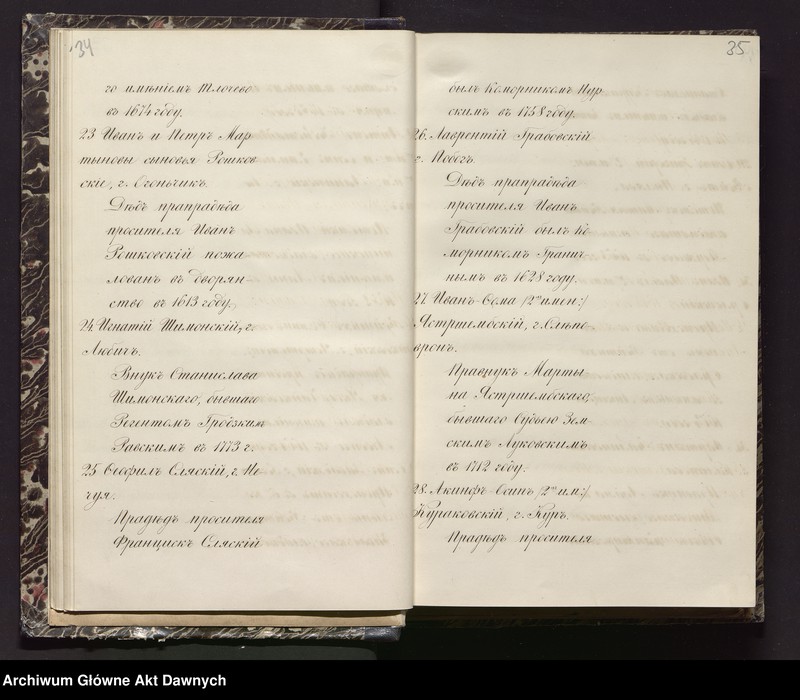 34
го имѣніемъ Млочево
въ 1674 году.
23 Иванъ и Петръ Мар
тыновы сыновья Рошков
скіе, г. Огончикъ.
Дѣдъ прапрадѣда
просителя Иванъ
Рошковскій пожа
лованъ въ дворян-
ство въ 1613 году.
24. Игнатій Шимонскій, г.
Любичъ.
Внукъ Станислава
Шимонскаго, бывшаго
Регентомъ Гродзким
Равскимъ въ 1773 г.
25 Ѳеофилъ Сляскій, г. Не
чуя.
Прадѣдъ просителя
Францискъ Сляскій
35
былъ Коморникомъ Нур
скимъ въ 1758 году.
26. Лаврентій Грабовскій
г. Побогъ.
Дѣдъ прапрадѣда
просителя Иванъ
Грабовскій былъ Ко
морникомъ Гранич-
нымъ въ 1628 году.
27 Иванъ-Сома /2хъ имен:/
Ястршембскій, г. Слѣпо-
вронъ.
Правнукъ Марты
на Ястршембскаго,
бывшаго Судьею Зем-
скимъ Луковскимъ
въ 1712 году.
28. Акинфъ-Осипъ /2хъ им:/
Кураковскій, г. Куръ.
Прадѣдъ просителя
Archiwum Główne Akt Dawnych